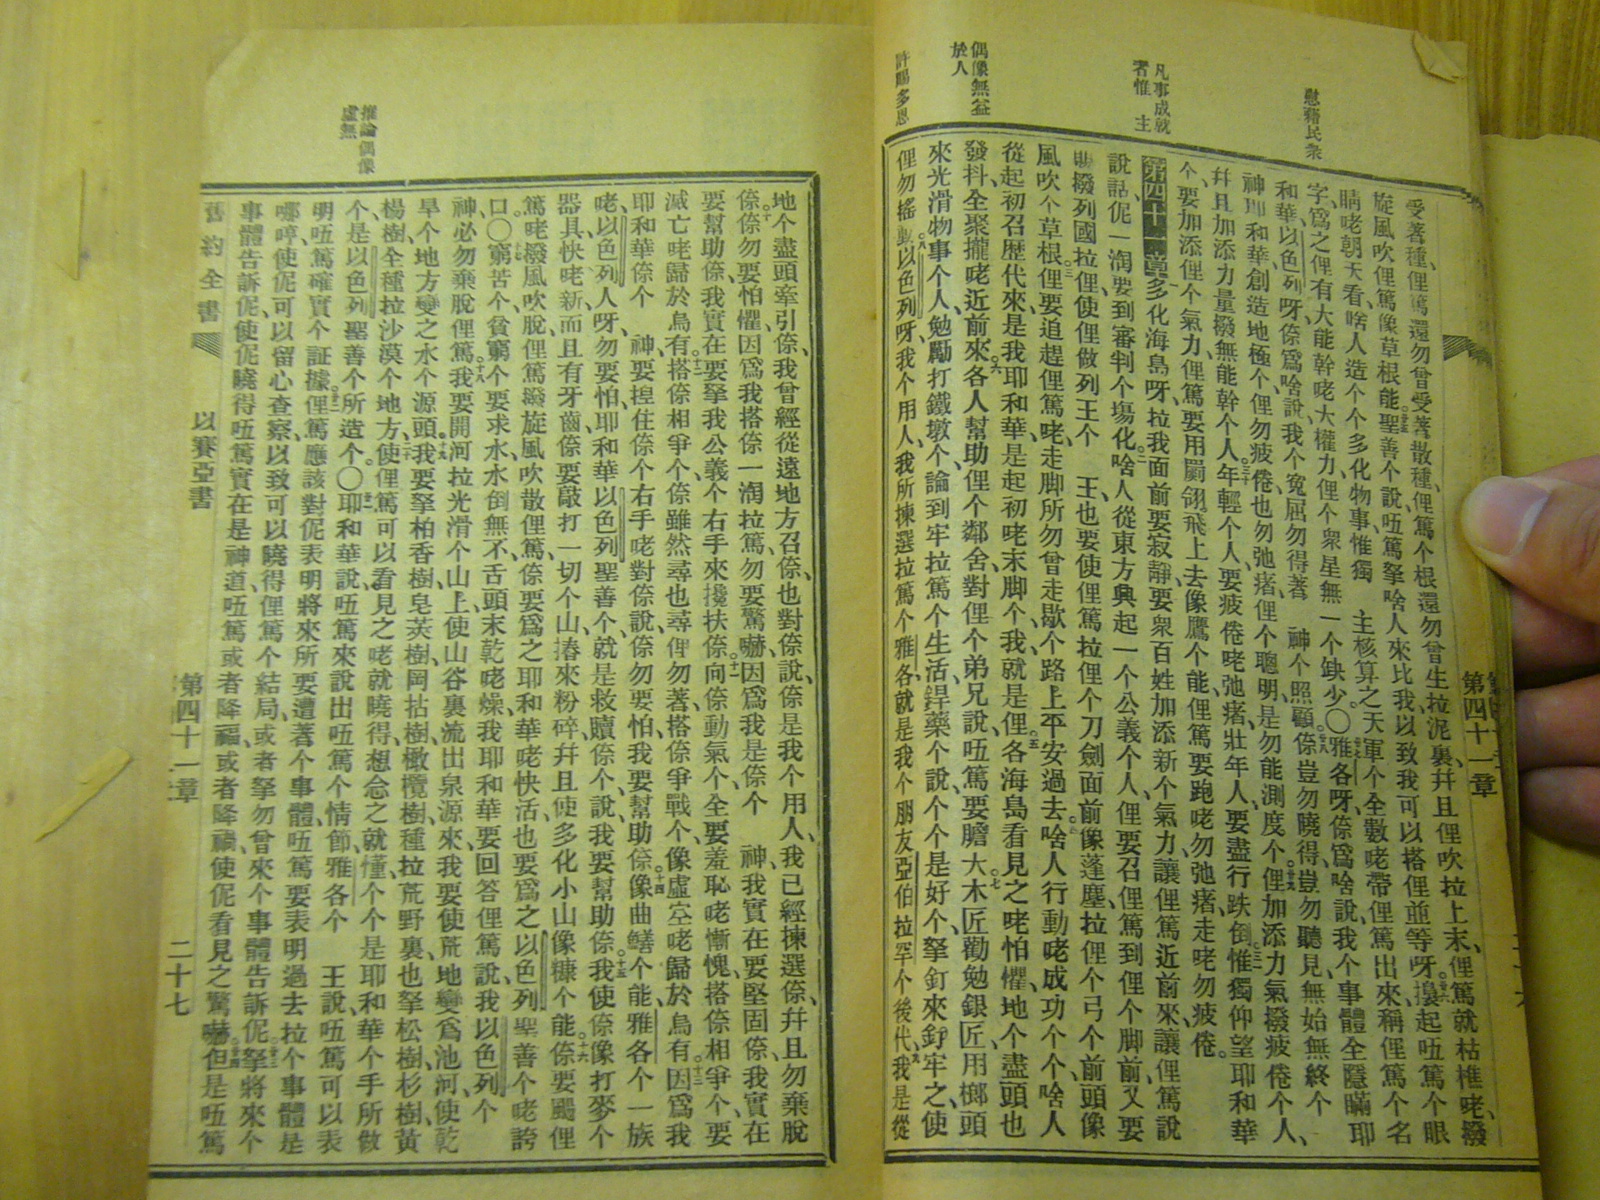 慰藉民衆
凡事成就
者惟 主
偶像無益
於人
許賜多恩
第四十一章
受著種、俚篤還勿曾受著散種、俚篤个根還勿曾生拉泥裏、幷且俚吹拉上末、俚篤就枯樵咾、撥
旋風吹俚篤像草根能。聖善个說、㕶篤拏啥人來比我、以致我可以搭俚並等呀。擡起㕶篤个眼
睛咾朝天看、啥人造个个多化物事、惟獨 主核算之天軍个全數咾帶俚篤出來、稱俚篤个名
字、爲之俚有大能幹咾大權力、俚个衆星無一个缺少。〇雅各呀、倷爲啥說、我个事體全隱瞞耶
和華、以色列呀、倷爲啥說、我个寃屈勿得著 神个照顧。倷豈勿曉得、豈勿聽見、無始無終个
神耶和華、創造地極个、俚勿疲倦也勿弛瘏、俚个聰明、是勿能測度个。俚加添力氣撥疲倦个人、
幷且加添力量撥無能幹个人。年輕个人要疲倦咾弛瘏、壯年人、要盡行跌倒。惟獨仰望耶和華
个、要加添俚个氣力、俚篤要用翮翎飛上去像鷹个能、俚篤要跑咾勿弛瘏、走咾勿疲倦。
第四十一章 多化海島呀、拉我面前要寂靜、要衆百姓加添新个氣力、讓俚篤近前來、讓俚篤說
說話、伲一淘要到審判个塲化。啥人從東方興起一个公義个人、俚要召俚篤到俚个脚前、又要
賜撥列國拉俚、使俚做列王个 王、也要使俚篤拉俚个刀劍面前像蓬塵、拉俚个弓个前頭像
風吹个草根。俚要追趕俚篤咾、走脚所勿曾走歇个路上平安過去。啥人行動咾成功个个、啥人
從起初召歷代來、是我耶和華、是起初咾末脚个、我就是俚。各海島看見之咾怕懼、地个盡頭也
發抖、全聚攏咾近前來。各人幫助俚个鄰舍、對俚个弟兄說、㕶篤要膽大。木匠勸勉銀匠、用榔頭
來光滑物事个人、勉勵打鐵墩个、論到牢拉篤个生活、銲藥个說、个个是好个、拏釘來釘牢之、使
俚勿搖動。以色列呀、我个用人、我所揀選拉篤个雅各、就是我个朋友亞伯拉罕个後代、我是從
推論偶像
虛無
地个盡頭牽引倷、我曾經從遠地方召倷、也對倷說、倷是我个用人、我已經揀選倷、幷且勿棄脫
倷。倷勿要怕懼、因爲我搭倷一淘拉篤、勿要驚嚇、因爲我是倷个 神、我實在要堅固倷、我實在
要幫助倷、我實在要拏我公義个右手來攙扶倷。向倷動氣个、全要羞恥咾慚愧、搭倷相爭个、要
滅亡咾歸於烏有。搭倷相爭个、倷雖然尋也尋俚勿著、搭倷爭戰个、像虛空咾歸於烏有。因爲我
耶和華倷个 神、要揑住倷个右手咾對倷說、倷勿要怕、我要幫助倷。像曲鱔个能雅各个一族
咾以色列人呀、勿要怕、耶和華以色列聖善个、就是救贖倷个說、我要幫助倷。我使倷像打麥个
器具、快咾新、而且有牙齒、倷要敲打一切个山、搼來粉碎、幷且使多化小山像糠个能。倷要颺俚
篤咾、撥風吹脫、俚篤撥旋風吹散俚篤、倷要爲之耶和華咾快活、也要爲之以色列聖善个咾誇
口。〇窮苦个、貧窮个、要求水、水倒無不、舌頭末乾咾燥、我耶和華要回答俚篤說、我以色列个
神、必勿棄脫俚篤。我要開河拉光滑个山上、使山谷裏流出泉源來、我要使荒地變爲池河、使乾
旱个地方變之水个源頭。我要拏柏香樹、皂莢樹、岡拈樹、橄欖樹、種拉荒野裏、也拏松樹、杉樹、黃
楊樹、全種拉沙漠个地方。使俚篤可以看見之咾就曉得、想念之就懂、个个是耶和華个手所做
个、是以色列聖善个所造个。〇耶和華說、㕶篤來說出㕶篤个情節、雅各个 王說、㕶篤可以表
明㕶篤確實个証據。俚篤應該對伲表明將來所要遭著个事體、㕶篤要表明過去拉个事體是
哪哼、使伲可以留心查察、以致可以曉得俚篤个結局、或者拏勿曾來个事體告訴伲。拏將來个
事體告訴伲、使伲曉得㕶篤實在是神道、㕶篤或者降福、或者降禍、使伲看見之驚嚇。但是㕶篤
舊約全書 以賽亞書 第四十一章 二十七